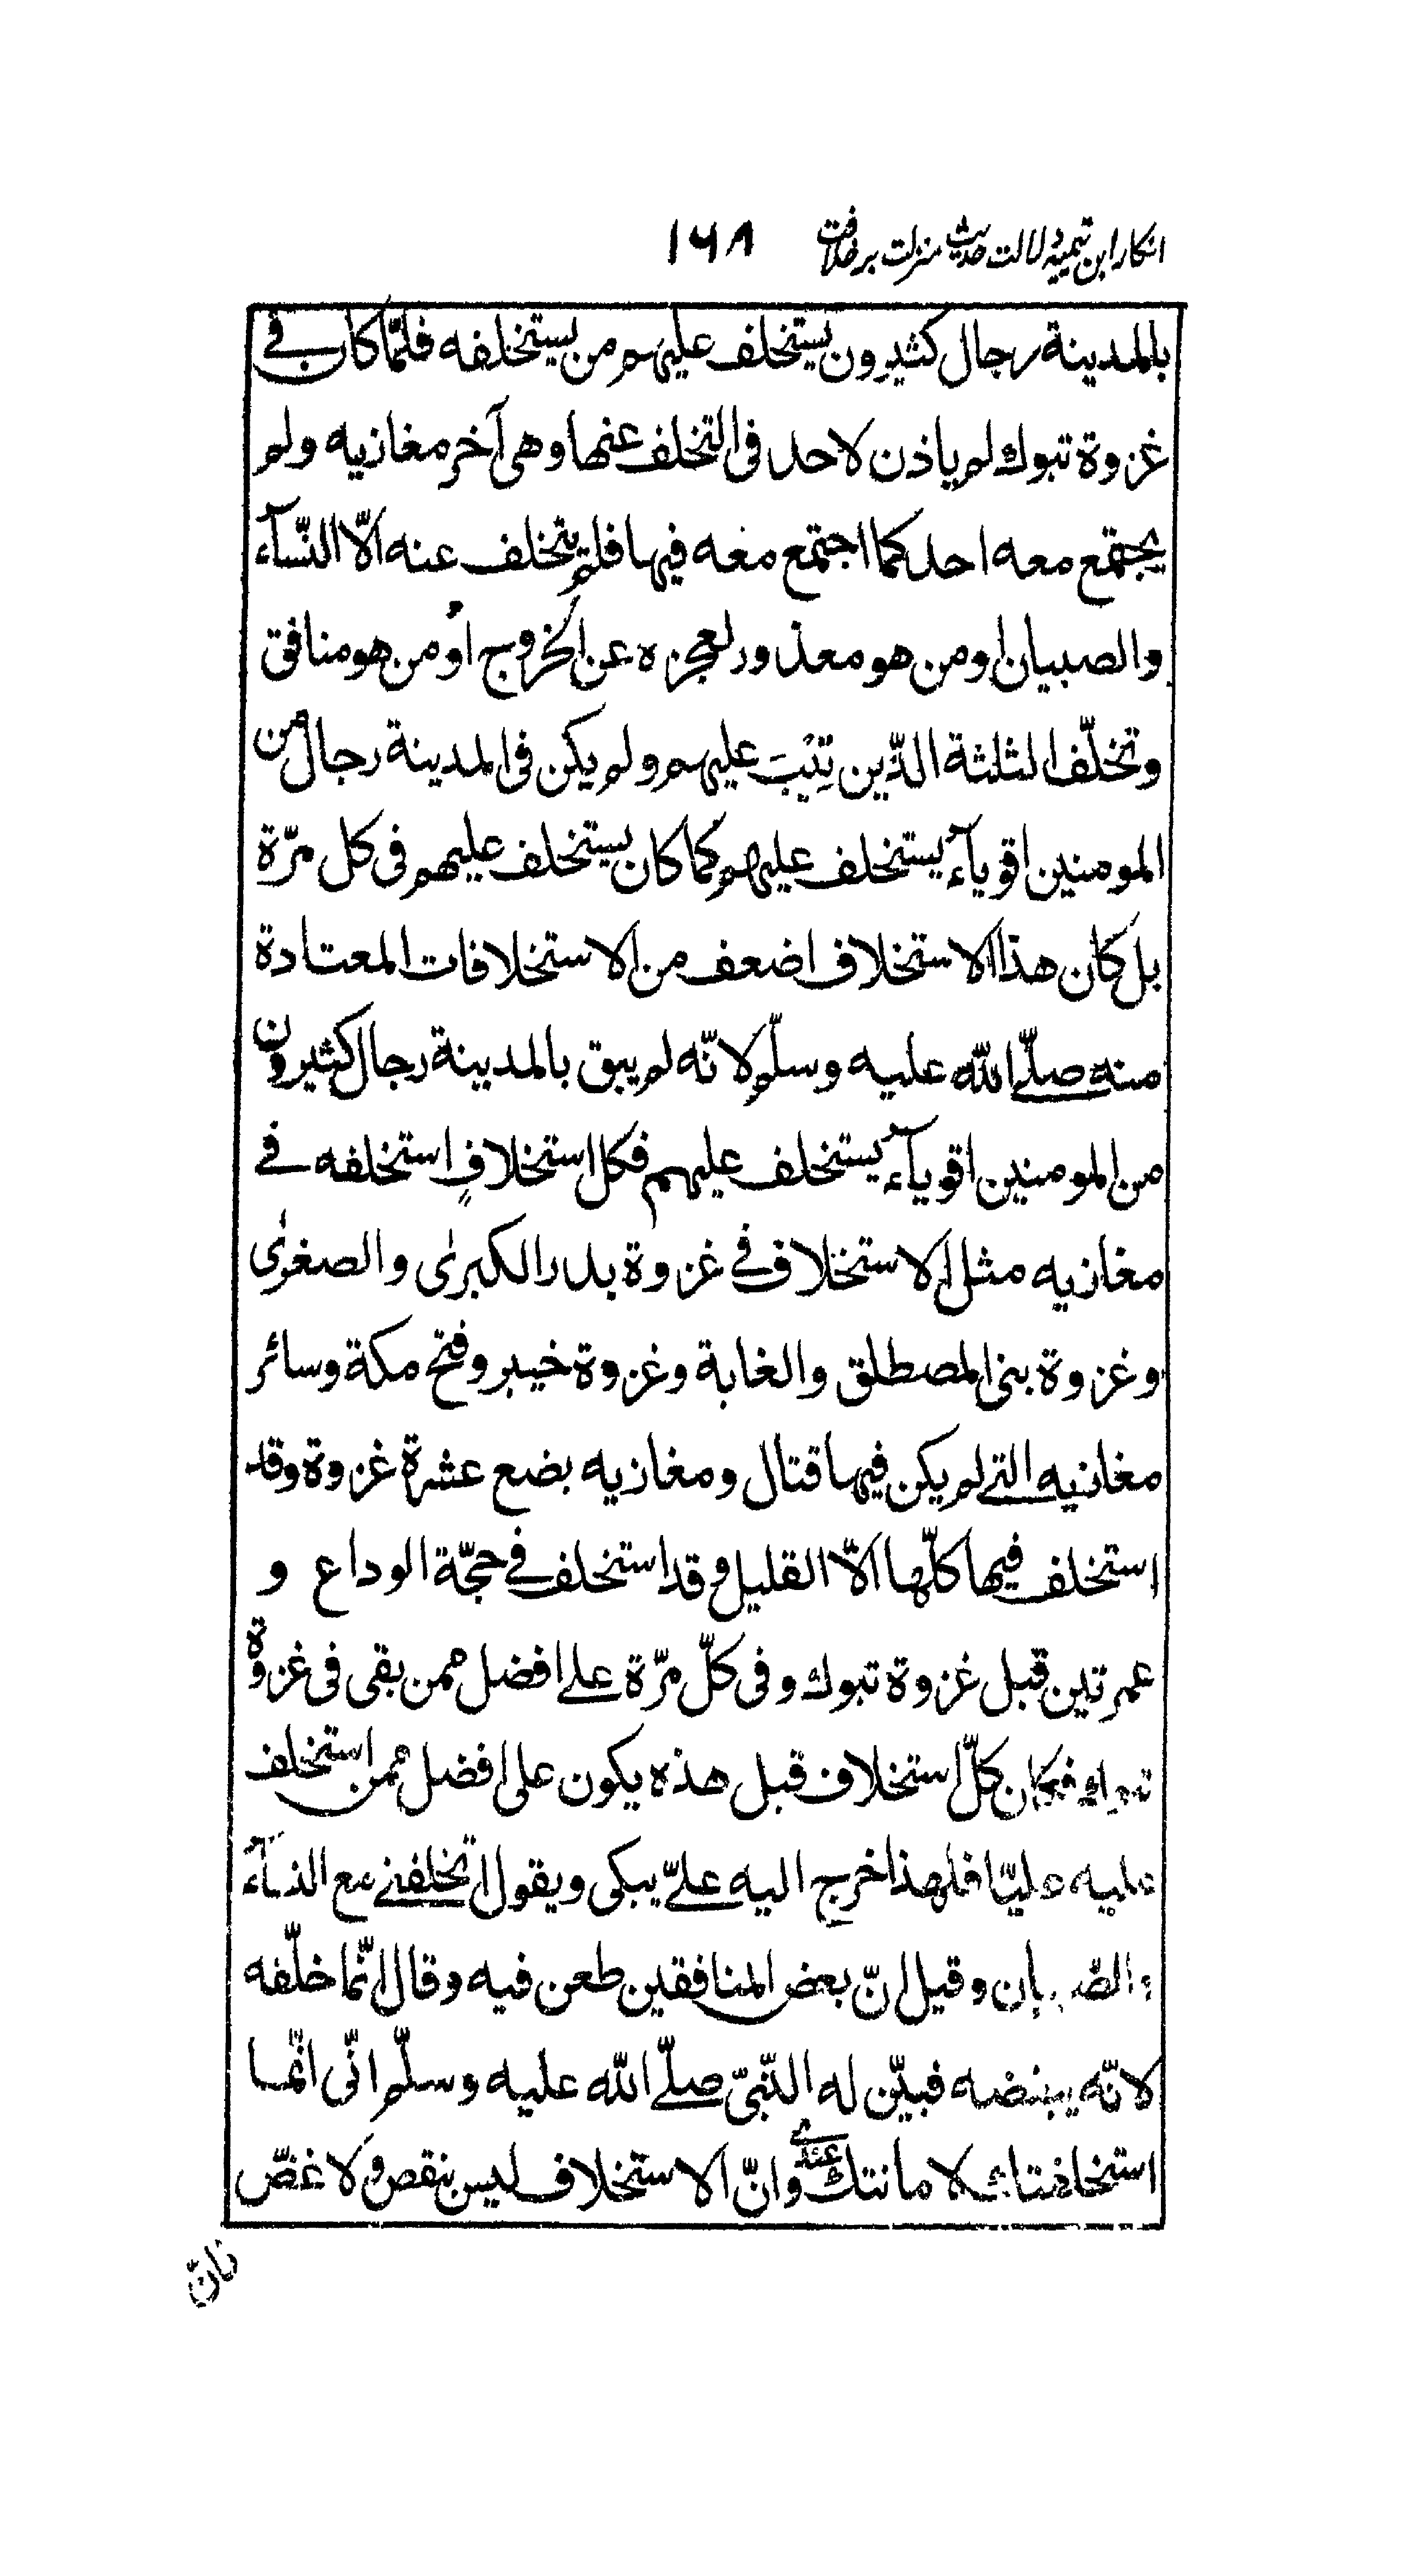 انکار ابن تیمیه دلالت حدیث منزلت بر خلافت ۱۶۸
بالمدينة رجال كثيرون يستخلف عليهم من يستخلفه فلمّا كان فى
غزوة تبوك لم ياذن لاحد فى التخلف عنها وهى آخر مغازيه ولم
يجتمع معه احد كما اجتمع معه فيها فلم يتخلف عنه الّا النّسآء
والصبيان او من هو معذور لعجزه عن الخروج او من هو منافق
وتخلّف الثلثة الذّين تِيْبَ عليهم ولم يكن فى المدينة رجال من
المومنين اقويآء يستخلف عليهم كما كان يستخلف عليهم فى كل مرّة
بل كان هذا الاستخلاف اضعف من الاستخلافات المعتادة
منه صلّى اللّه عليه وسلّم لانّه لم يبق بالمدينة رجال كثيرون
من المومنين اقويآء يستخلف عليهم فكل استخلافٍ استخلفه فى
مغازيه مثل الاستخلاف فى غزوة بدر الكبرىٰ والصغرىٰ
وغزوة بنى المصطلق والغابة وغزوة خيبر وفتح مكة وسائر
مغازيه التى لم يكن فيها قتال ومغازيه بضع عشرة غزوة وقد
استخلف فيها كلّها الّا القليل وقد استخلف فى حجّة الوداع و
عمرتين قبل غزوة تبوك وفى كلّ مرّة على افضل ممن بقى فى غزوة
تبوك فكان كلّ استخلاف قبل هذه يكون على افضل ممن استخلف
عليه عليّا فلهذا خرج اليه علىّ يبكى ويقول اتخلفنى مع النسآء
والصّبيان وقيل انّ بعض المنافقين طعن فيه وقال انّما خلّفه
لانّه يبغضه فبيّن له النّبىّ صلّى اللّه عليه وسلّم انّى انّما
استخلفتك لامانتك عندى وانّ الاستخلاف ليس بنقص ولا غضّ